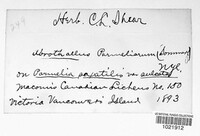 Herb. C. L. Shear
Abrothallus Parmeliarum (Sommerf)
Nyl.
on Parmelia saxatilis var sulcata
Macouns Canadian Lichens no. 150
Victoria Vancouver's Island 1893
1021912